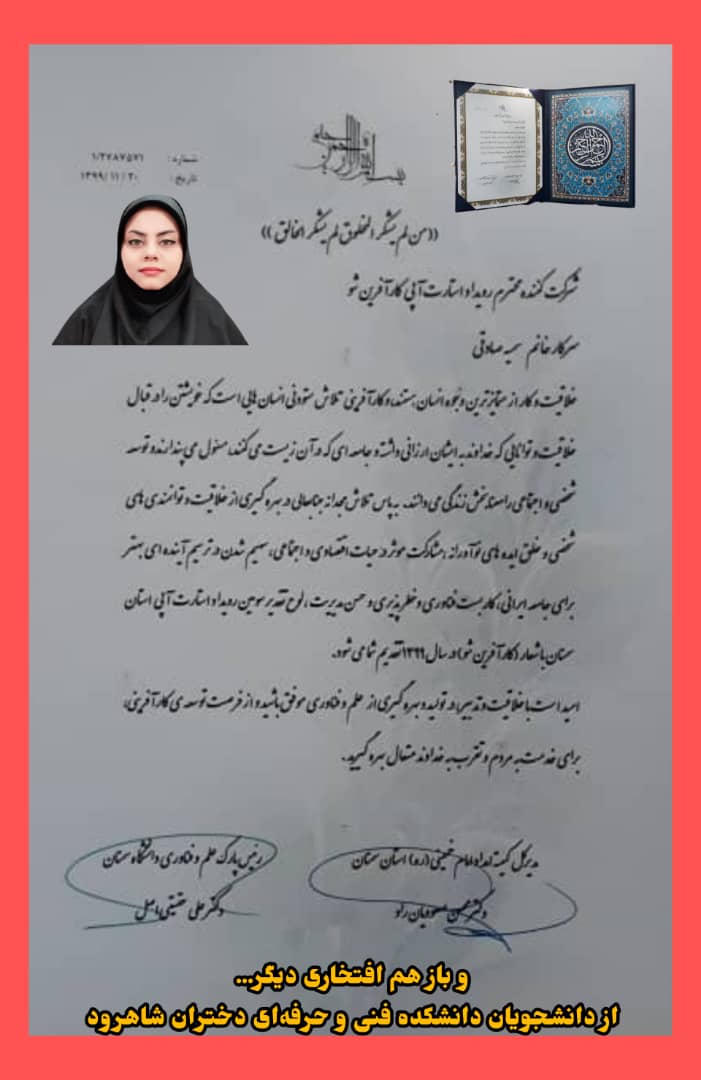 بسم الله الرحمن الرحیم
شماره: ۱/۲۷۸۷۵۷۱
تاریخ: ۱۳۹۹/۱۱/۲۰
((من لم یشکر المخلوق لم یشکر الخالق))
شرکت کننده محترم رویداد استارت آپی کارآفرین شو
سرکار خانم سمیه صادقی
خلاقیت و کار از متمایزترین وجوه انسان هستند، و کارآفرینی تلاش ستودنی انسان هایی است که خویشتن را در قبال
خلاقیت و توانایی که خداوند به ایشان ارزانی داشته و جامعه ای که در آن زیست می کنند، مسئول می پندارند و توسعه
شخصی و اجتماعی را معنا بخش زندگی می دانند. به پاس تلاش مجدانه جنابعالی در بهره گیری از خلاقیت و توانمندی های
شخصی و خلق ایده های نوآورانه، مشارکت موثر در حیات اقتصادی و اجتماعی، سهیم شدن در ترسیم آینده ای بهتر
برای جامعه ایرانی، کاربست فناوری و خطرپذیری و حسن مدیریت، لوح تقدیر سومین رویداد استارت آپی استان
سمنان با شعار (کارآفرین شو) در سال ۱۳۹۹ تقدیم شما می شود.
امید است با خلاقیت و تدبیر، در تولید و بهره گیری از علم و فناوری موفق باشید و از فرصت توسعه ی کارآفرینی،
برای خدمت به مردم و تقرب به خداوند متعال بهره گیرید.
مدیرکل کمیته امداد امام خمینی (ره) استان سمنان
دکتر محسن مسعودیان راد
رئیس پارک علم و فناوری دانشگاه سمنان
دکتر علی حقیقی اصل
و باز هم افتخاری دیگر...
از دانشجویان دانشکده فنی و حرفه‌ای دختران شاهرود